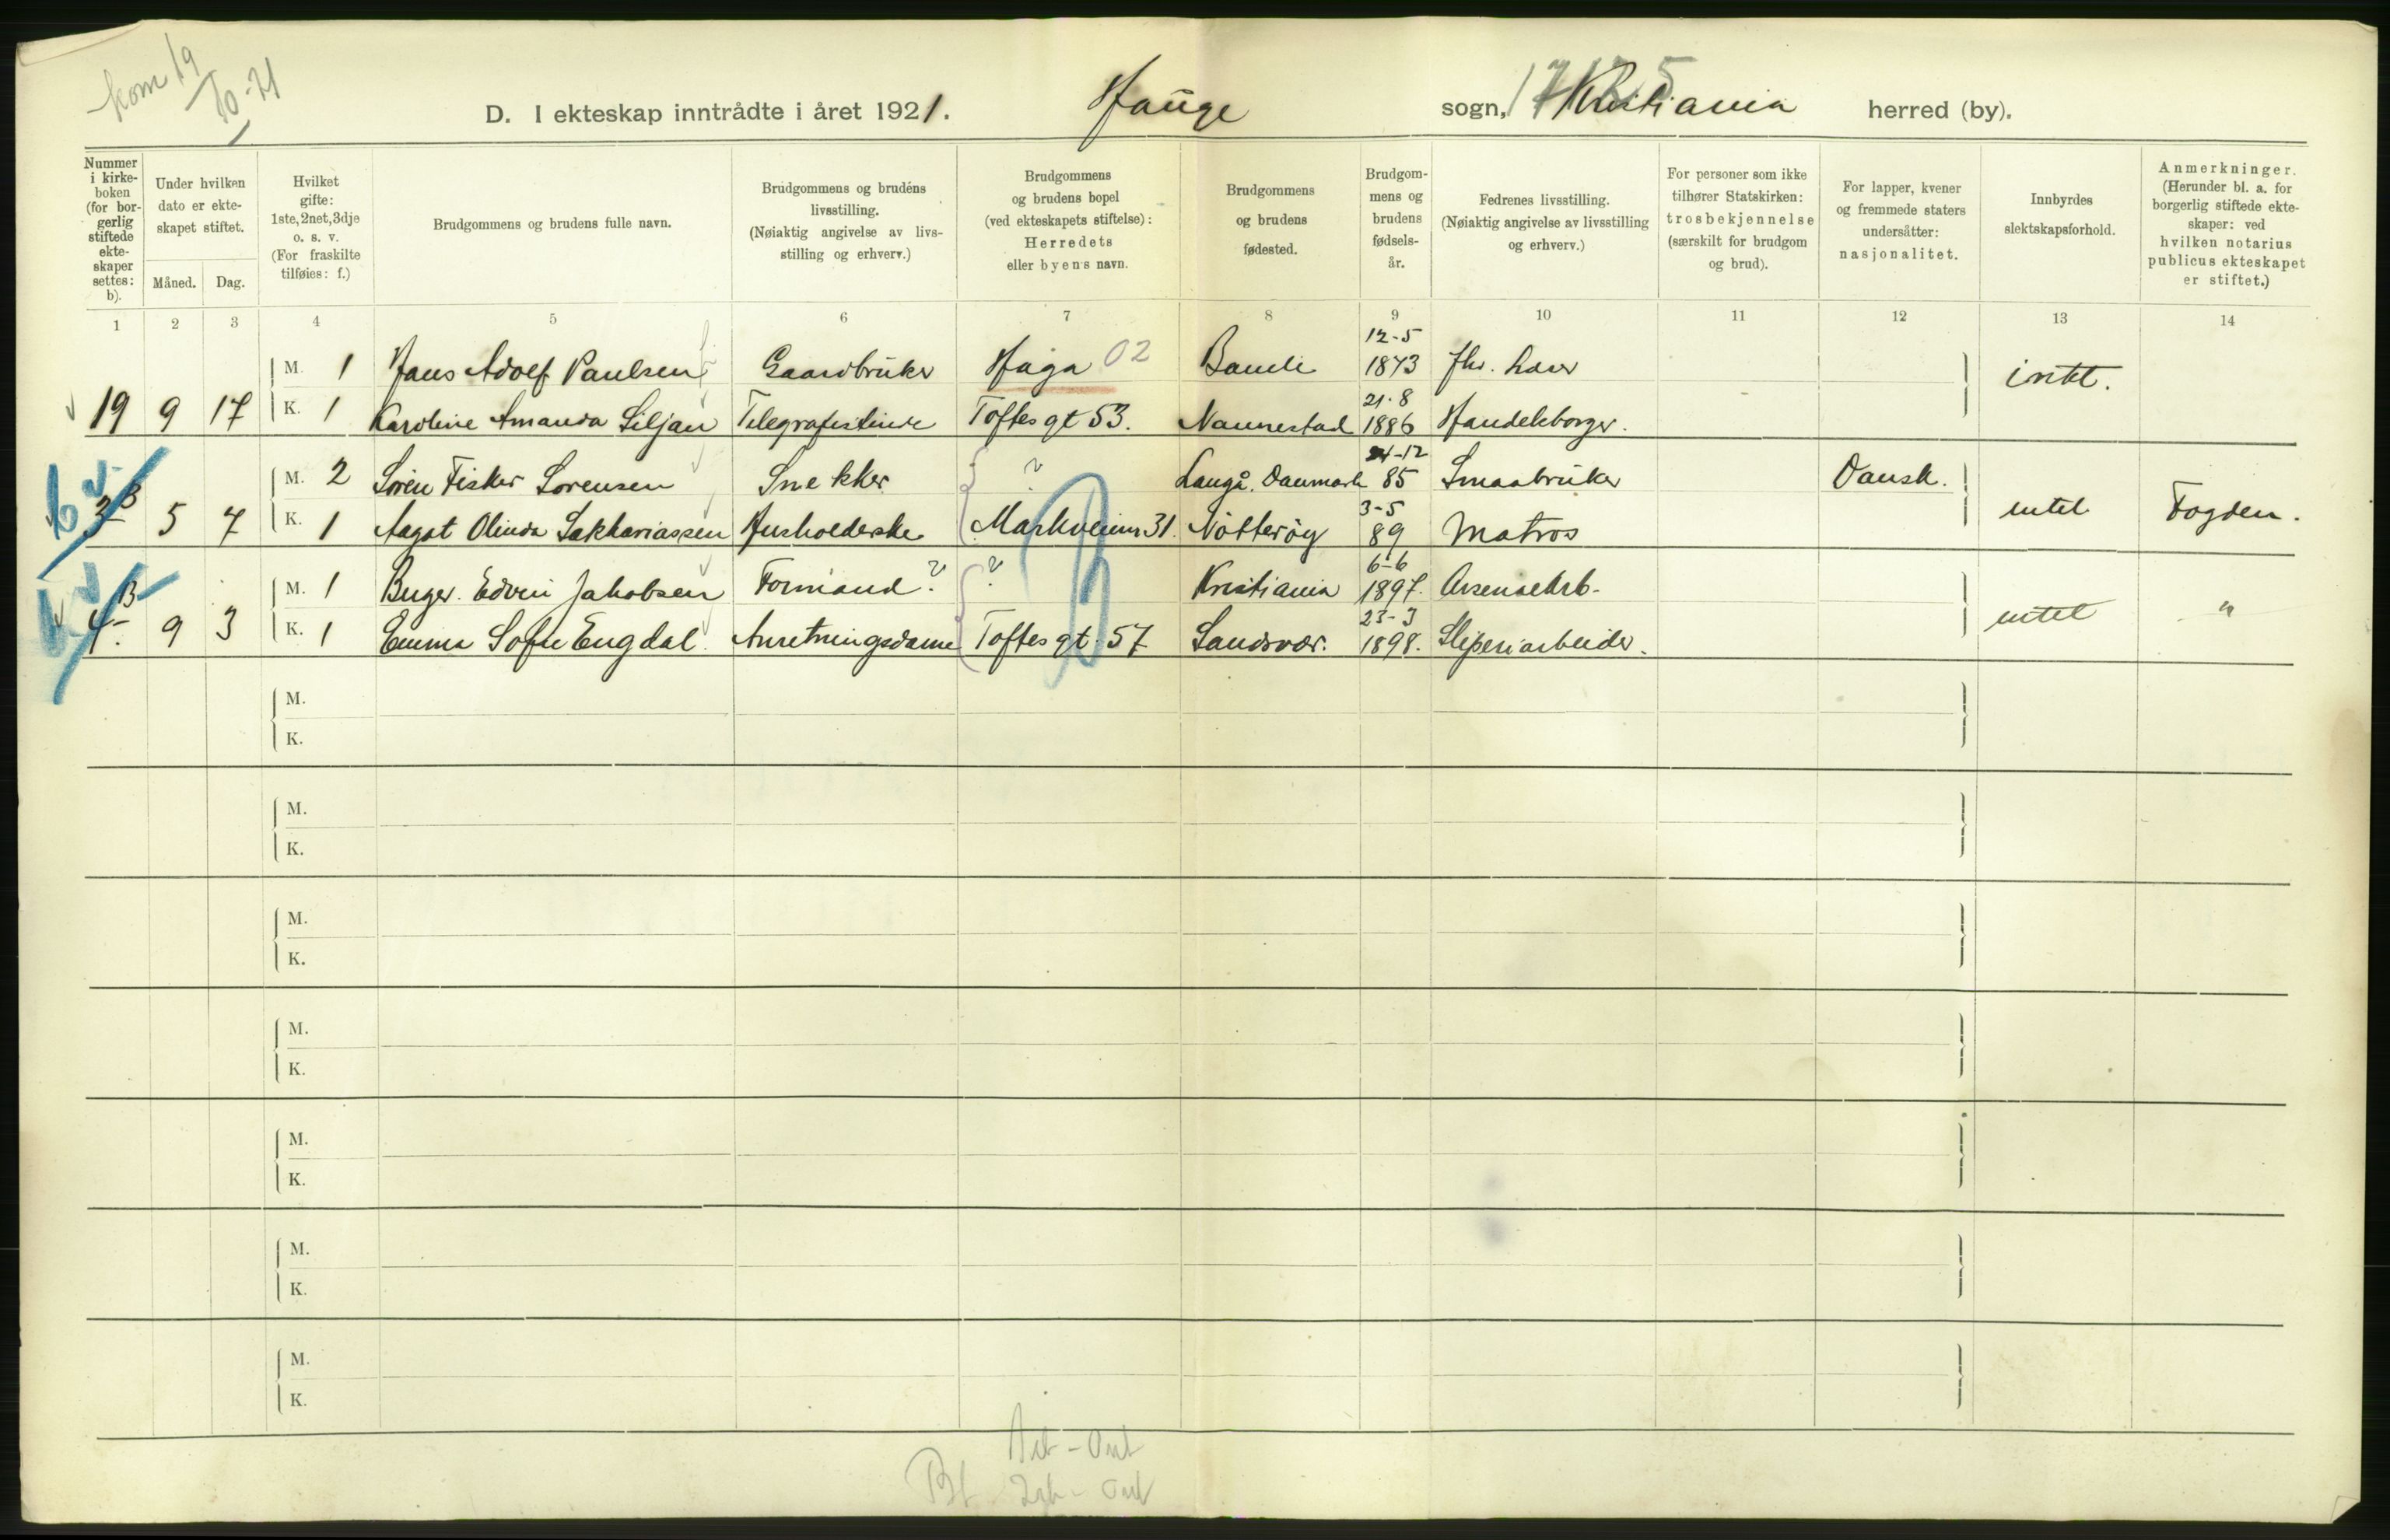 kom 19/10-21
D. I ekteskap inntrådte i året 1921. Hauge sogn, Kristiania herred (by).
Nummer i kirke-boken (for bor-gerlig stiftede ekte-skaper settes: b).
Under hvilken dato er ekte-skapet stiftet.
Måned. Dag.
Hvilket gifte: 1ste, 2net, 3dje o. s. v. (For fraskilte tilføies: f.)
Brudgommens og brudens fulle navn.
Brudgommens og brudens livsstilling. (Nøiaktig angivelse av livs-stilling og erhverv.)
Brudgommens og brudens bopel (ved ekteskapets stiftelse): Herredets eller byens navn.
Brudgommens og brudens fødested.
Brudgom-mens og brudens fødsels-år.
Fedrenes livsstilling. (Nøiaktig angivelse av livsstilling og erhverv.)
For personer som ikke tilhører Statskirken: trosbekjennelse (særskilt for brudgom og brud).
For lapper, kvener og fremmede staters undersåtter: nasjonalitet.
Innbyrdes slektskapsforhold.
Anmerkninger. (Herunder bl. a. for borgerlig stiftede ekte-skaper: ved hvilken notarius publicus ekteskapet er stiftet.)
1 2 3 4 5 6 7 8 9 10 11 12 13 14
M. 1 Hans Adolf Paulsen Gaardbruker Haga 02 Bamle 12-5 1873 intet.
19 9 17 K. 1 Karoline Amanda Siljan Telegrafistinde Toftes gt 53. Nannestad 21-8 1886 Handelsborger.
M. 2 Sören Fisker Sorensen Snekker ? Langå. Danmark 24-12 85 Smaabruker Dansk.
3 B 5 7 K. 1 Aagot Olinda Sakhariassen Husholderske Markveien 31. Nötteröy 3-5 89 Matros intet Fogden.
M. 1 Birger Edvin Jakobsen Formand? ? Kristiania 6-6 1897. Arsenalarb.
4 B 9 3 K. 1 Emma Sofie Engdal Anretningsdame Toftes gt. 57 Sandsvær. 23-3 1898. Sliperiarbeider. intet "
M.
K.
M.
K.
M.
K.
M.
K.
M.
K.
M.
K.
M.
K.